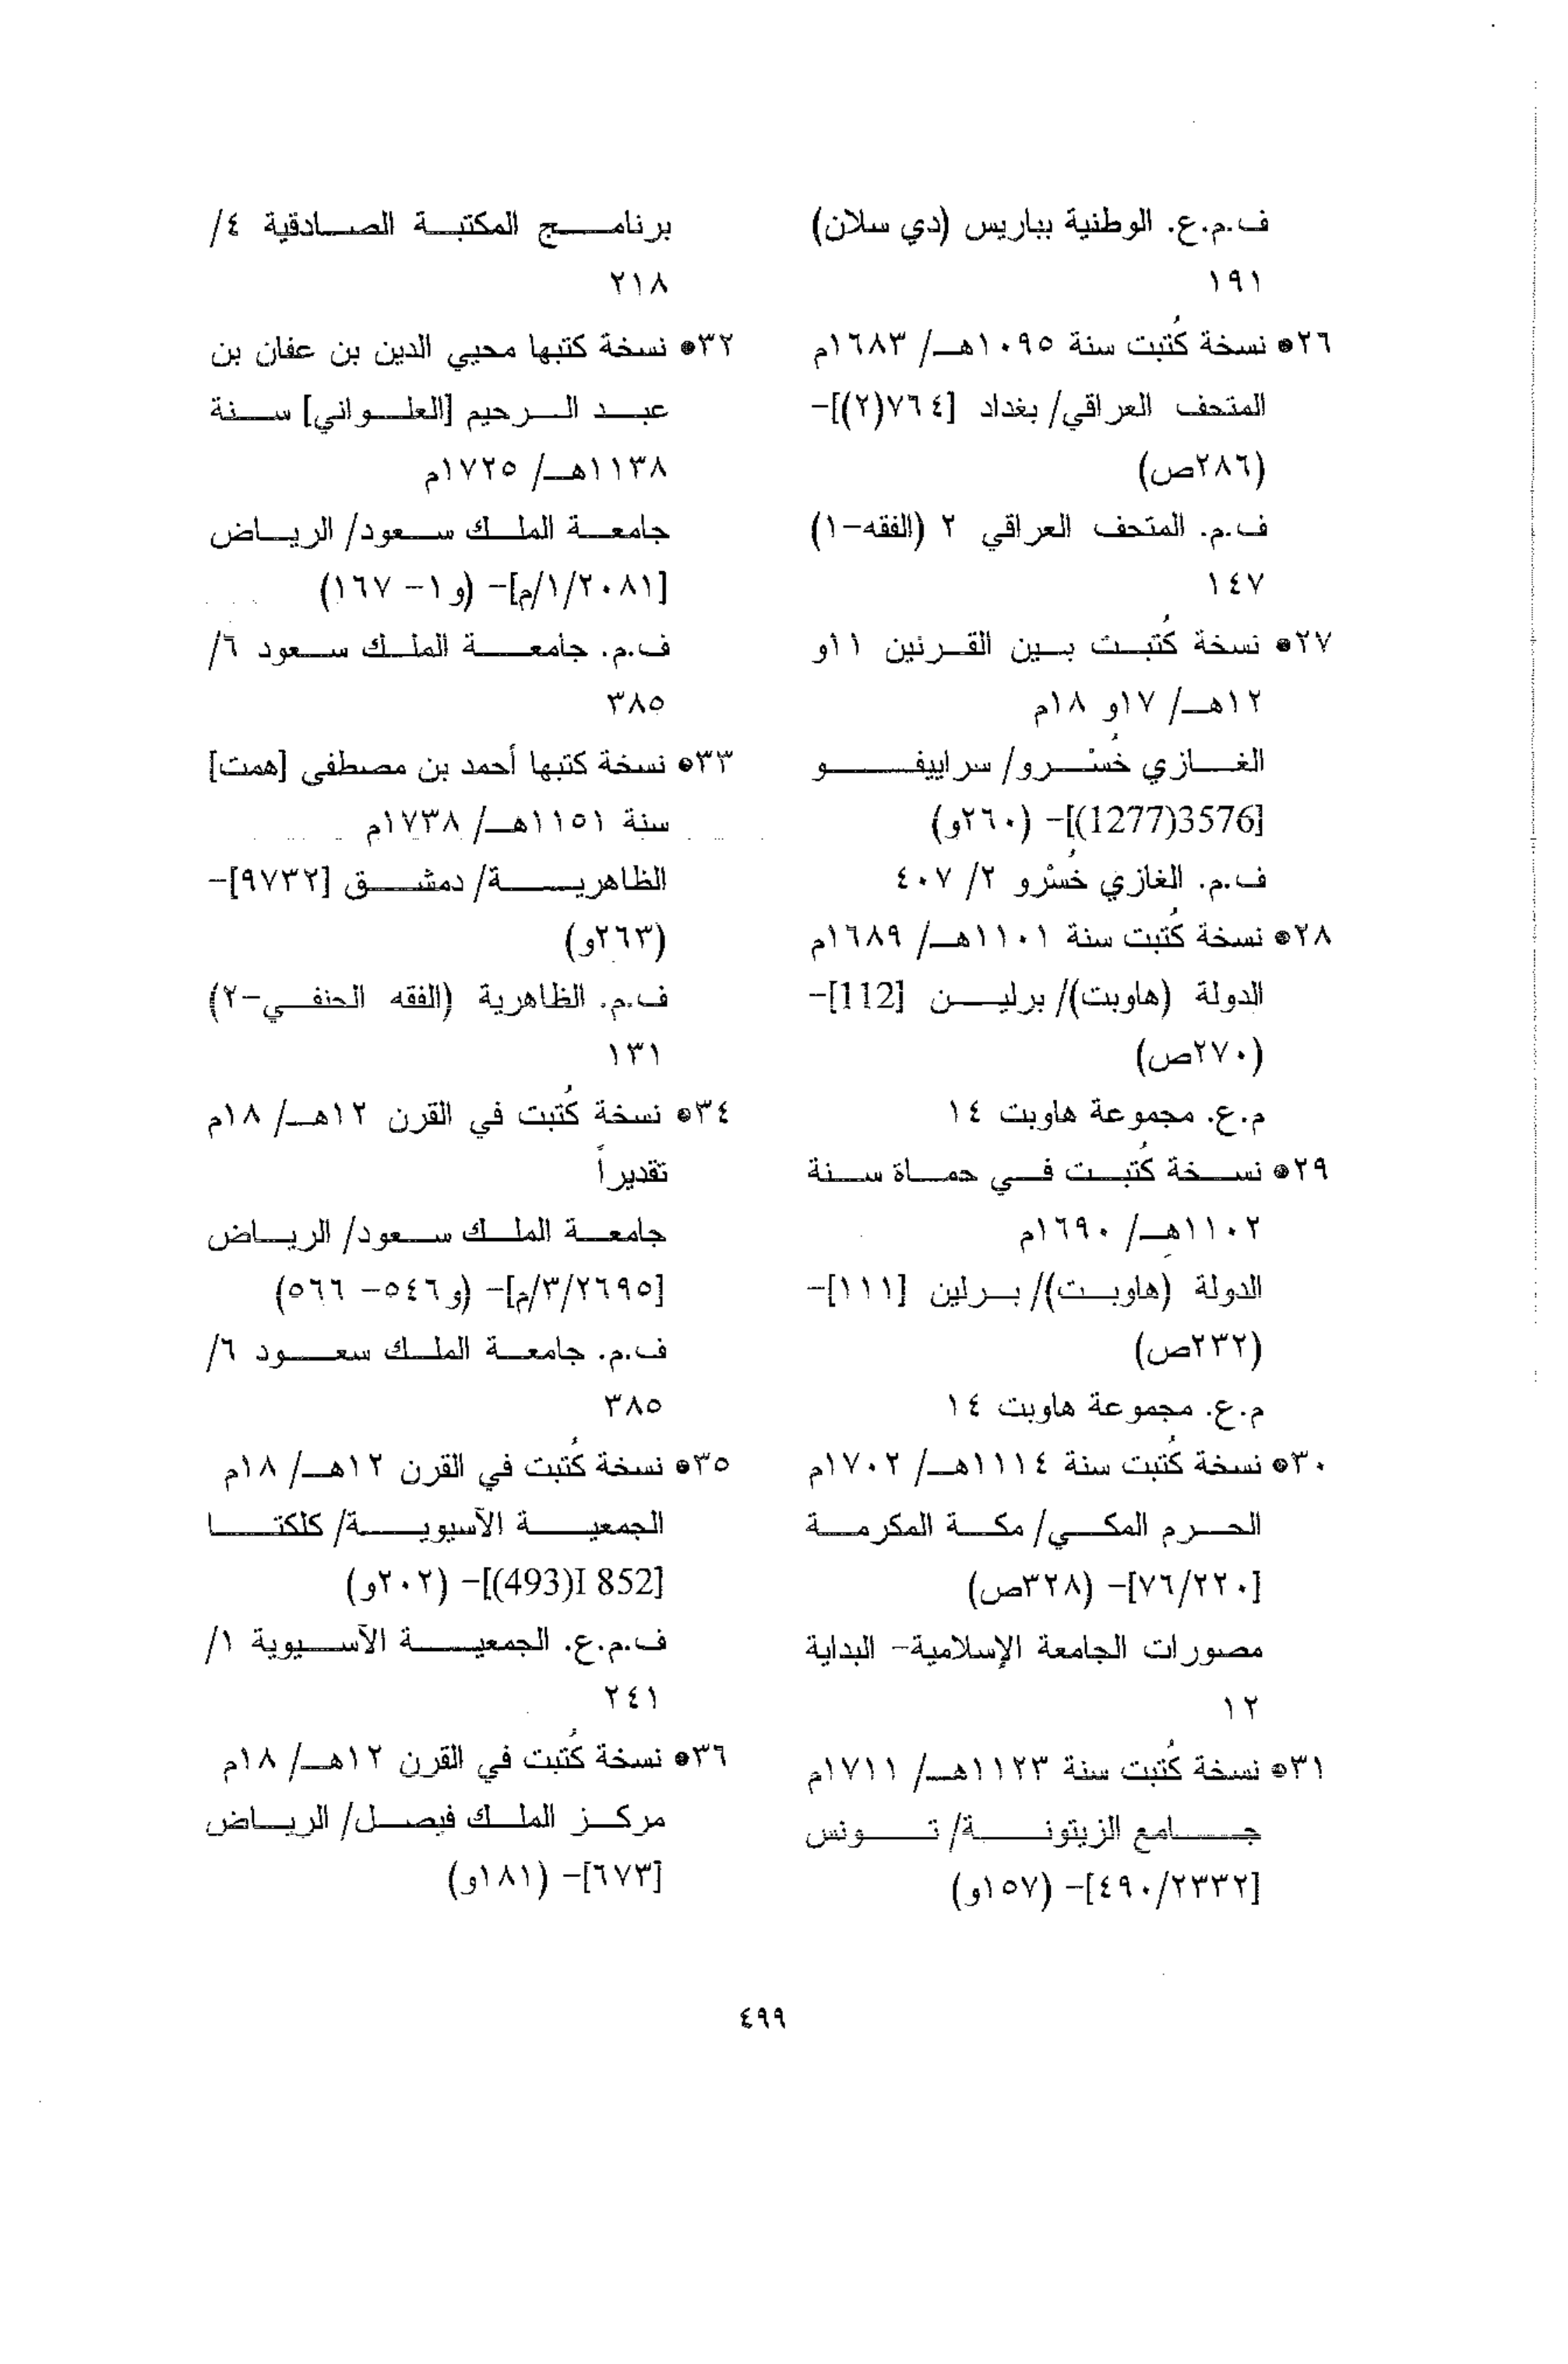 ف.م.ع. الوطنية بباريس (دي سلان)
١٩١
٢٦* نسخة كُتبت سنة ١٠٩٥هـ/ ١٦٨٣م
المتحف العراقي/ بغداد [٧٦٤(٢)]-
(٢٨٦ص)
ف.م. المتحف العراقي ٢ (الفقه-١)
١٤٧
٢٧* نسخة كُتبت بين القرنين ١١و
١٢هـ/ ١٧و ١٨م
الغازي خُسْرو/ سراييفو
[3576(1277)]- (٢٦٠و)
ف.م. الغازي خُسْرو ٢/ ٤٠٧
٢٨* نسخة كُتبت سنة ١١٠١هـ/ ١٦٨٩م
الدولة (هاوبت)/ برلين [112]-
(٢٧٠ص)
م.ع. مجموعة هاوبت ١٤
٢٩* نسخة كُتبت في حماة سنة
١١٠٢هـ/ ١٦٩٠م
الدولة (هاوبت)/ برلين [١١١]-
(٢٣٢ص)
م.ع. مجموعة هاوبت ١٤
٣٠* نسخة كُتبت سنة ١١١٤هـ/ ١٧٠٢م
الحرم المكي/ مكة المكرمة
[٧٦/٢٢٠]- (٣٢٨ص)
مصورات الجامعة الإسلامية- البداية
١٢
٣١* نسخة كُتبت سنة ١١٢٣هـ/ ١٧١١م
جامع الزيتونة/ تونس
[٤٩٠/٢٣٣٢]- (١٥٧و)
برنامج المكتبة الصادقية ٤/
٢١٨
٣٢* نسخة كتبها محيي الدين بن عفان بن
عبد الرحيم [العلواني] سنة
١١٣٨هـ/ ١٧٢٥م
جامعة الملك سعود/ الرياض
[١/٢٠٨١/م]- (و١- ١٦٧)
ف.م. جامعة الملك سعود ٦/
٣٨٥
٣٣* نسخة كتبها أحمد بن مصطفى [همت]
سنة ١١٥١هـ/ ١٧٣٨م
الظاهرية/ دمشق [٩٧٣٢]-
(٢٦٣و)
ف.م. الظاهرية (الفقه الحنفي-٢)
١٣١
٣٤* نسخة كُتبت في القرن ١٢هـ/ ١٨م
تقديراً
جامعة الملك سعود/ الرياض
[٣/٢٦٩٥/م]- (و٥٤٦- ٥٦٦)
ف.م. جامعة الملك سعود ٦/
٣٨٥
٣٥* نسخة كُتبت في القرن ١٢هـ/ ١٨م
الجمعية الآسيوية/ كلكتا
[852 I(493)]- (٢٠٢و)
ف.م.ع. الجمعية الآسيوية ١/
٢٤١
٣٦* نسخة كُتبت في القرن ١٢هـ/ ١٨م
مركز الملك فيصل/ الرياض
[٦٧٣]- (١٨١و)
٤٩٩